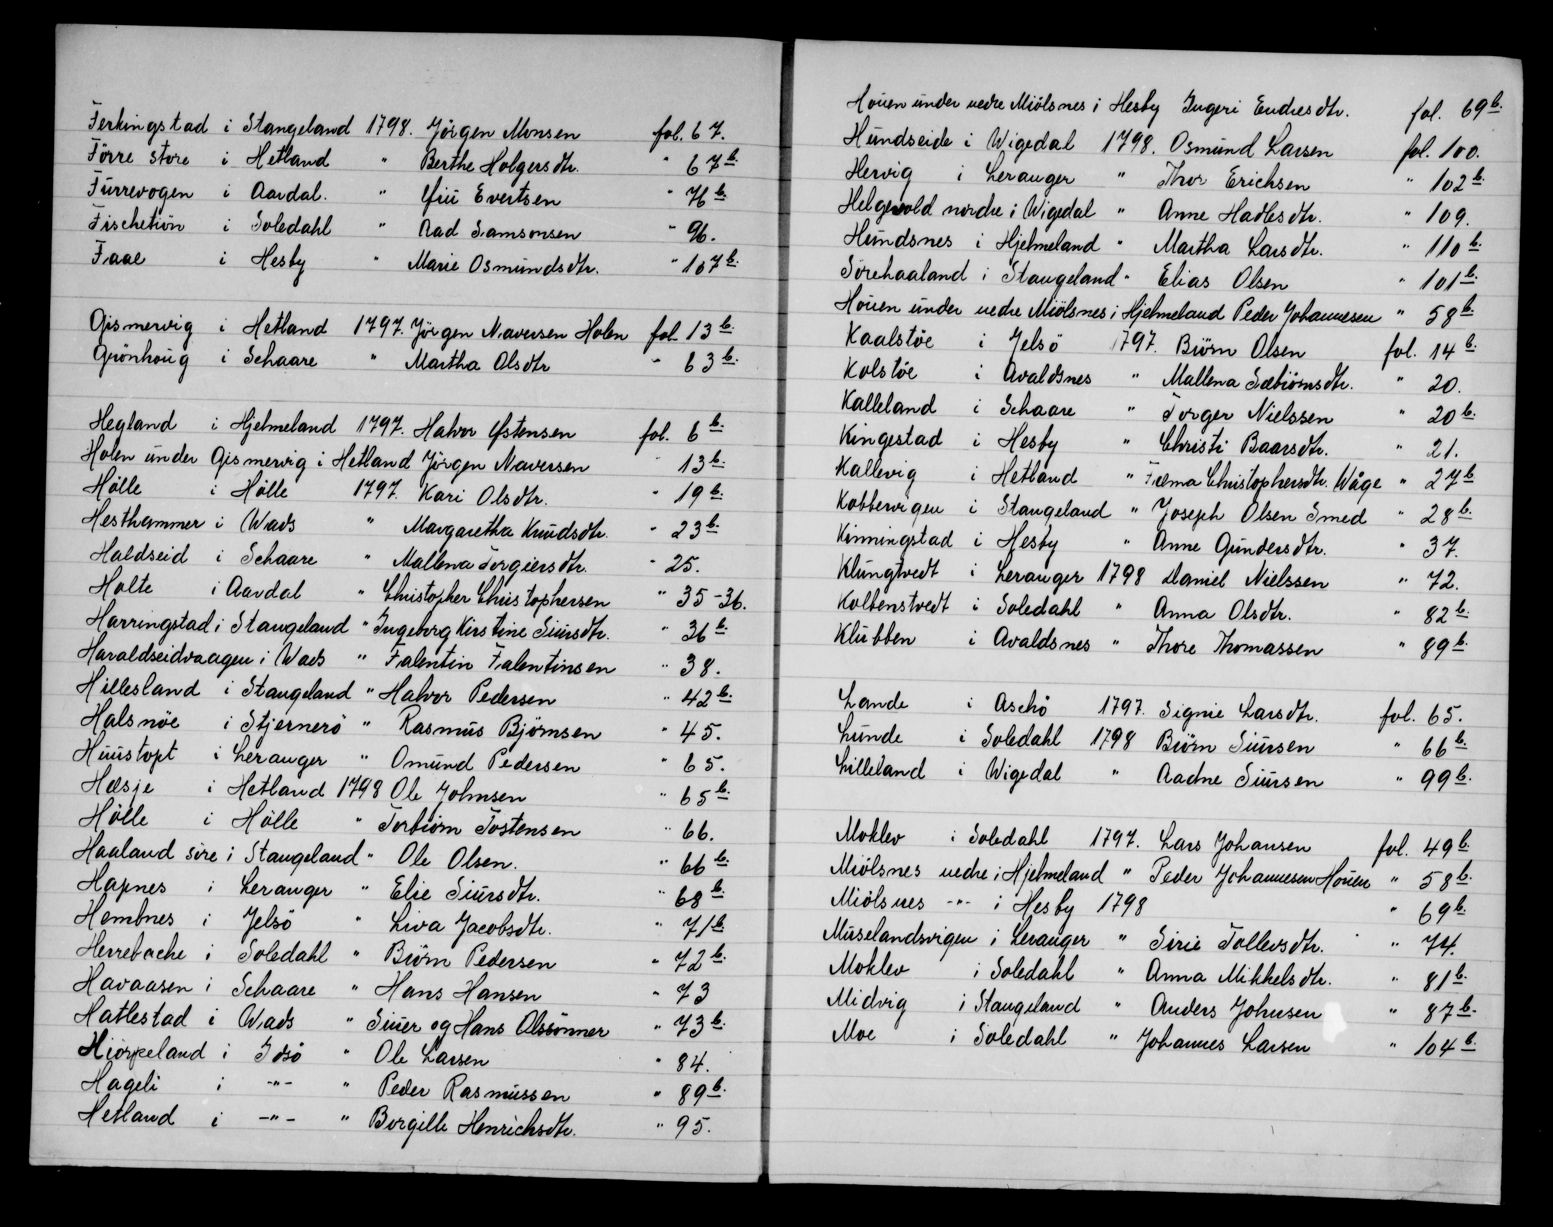 Ferkingstad i Stangeland 1798. Jörgen Monsen fol. 67.
Förre store i Hetland " Berthe Holgersdtr. " 67 b.
Fürrevogen i Aardal. " Evertsen " 76 b.
Fischetiön i Soledahl " Aad Samsonsen " 96.
Faae i Hesby " Marie Osmundsdtr. " 107 b.
Gismervig i Hetland 1797. Jörgen Naversen Holen fol. 13 b.
Grönhoug i Schaare " Martha Olsdtr " 63 b.
Hegland i Hjelmeland 1797. Halvor Ostensen fol. 6 b.
Holen under Gismervig i Hetland Jörgen Naversen " 13 b.
Hölle i Hölle 1797. Kari Olsdtr. " 19 b.
Hesthammer i Wads " Margaretha Knudsdtr. " 23 b.
Haldseid i Schaare " Mallena Torgiersdtr. " 25.
Holte i Aardal " Christopher Christophersen " 35-36.
Harringstad i Stangeland " Ingeborg Kirstine Siursdtr. " 36 b.
Haraldseidvaagen i Wads " Falentin Falentinsen " 38.
Hillesland i Stangeland " Halvor Pedersen " 42 b.
Halsnöe i Stjernerö " Rasmus Bjömsen " 45.
Huustopt i Leranger " Omund Pedersen " 65.
Hæsje i Hetland 1798 Ole Johnsen " 65 b.
Hölle i Hölle " Torbiörn Tostensen " 66.
Haaland söre i Stangeland " Ole Olsen. " 66 b.
Hapnes i Leranger " Elie Siursdtr. " 68 b.
Hembnes i Jelsö " Liva Jacobsdtr. " 71 b.
Herrebache i Soledahl " Biörn Pedersen " 72 b.
Havaasen i Schaare " Hans Hansen " 73
Hatlestad i Wads " Siuer og Hans Olssönner " 73 b.
Hiörpeland i Idsö " Ole Larsen " 84.
Hageli i -"- " Peder Rasmussen " 89 b.
Hetland i -"- " Borgille Henrichsdtr. " 95.
Houen under nedre Miölsnes i Hesby Ingeri Endresdtr. fol. 69 b.
Hundseide i Wigedal 1798. Osmund Larsen fol. 100.
Hervig i Leranger " Thor Erichsen " 102 b.
Helgevold nordre i Wigedal " Anne Hadlesdtr. " 109.
Hundsnes i Hjelmeland " Martha Larsdtr. " 110 b.
Sörehaaland i Stangeland " Elias Olsen " 101 b.
Houen under nedre Miölsnes i Hjelmeland Peder Johannesen " 58 b.
Kaalstöe i Jelsö 1797. Biörn Olsen fol. 14 b.
Kolstöe i Avaldsnes " Mallena Sæbiörnsdtr. " 20.
Kalleland i Schaare " Torger Nielssen " 20 b.
Kingestad i Hesby " Christi Baarsdtr. " 21.
Kallevig i Hetland " Christophersdtr. Wåge " 27 b.
Kobbervigen i Stangeland " Joseph Olsen Smed " 28 b.
Kinningstad i Hesby " Anne Gundersdtr. " 37.
Klungtvedt i Leranger 1798 Daniel Nielssen " 72.
Kolbenstvedt i Soledahl " Anna Olsdtr. " 82 b.
Klubben i Avaldsnes " Thore Thomassen " 89 b.
Lande i Aschö 1797. Signie Larsdtr. fol. 65.
Lunde i Soledahl 1798 Biörn Siursen " 66 b.
Lilleland i Wigedal " Aadne Siursen " 99 b.
Moklev i Soledahl 1797. Lars Johansen fol. 49 b.
Miölsnes nedre i Hjelmeland " Peder Johannesen Houen " 58 b.
Miölsnes -"- i Hesby 1798 " 69 b.
Muselandsvigen i Leranger " Sirie Tollevsdtr. " 74.
Moklev i Soledahl " Anna Mikkelsdtr. " 81 b.
Midvig i Stangeland " Anders Johnsen " 87 b.
Moe i Soledahl " Johannes Larsen " 104 b.